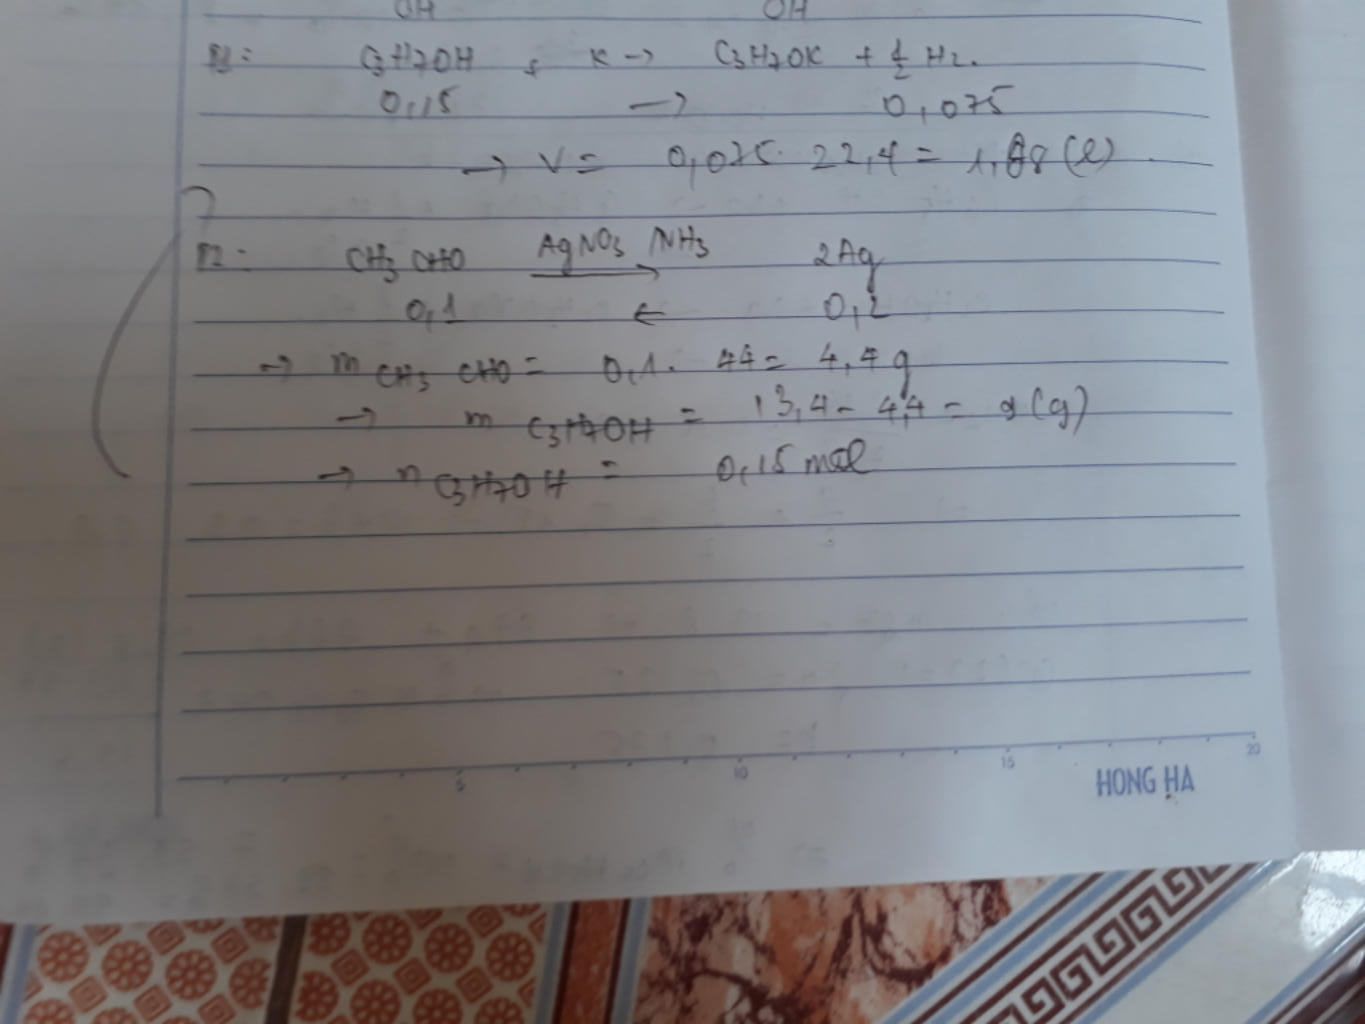 OH OH
P1: C3H7OH + K → C3H7OK + 1/2 H2.
0,15 → 0,075
→ V = 0,075. 22,4 = 1,68 (l)
P2: CH3 CHO AgNO3 NH3 → 2Ag
0,1 ← 0,2
→ m CH3 CHO = 0,1. 44 = 4,4 g
→ m C3H7OH = 13,4 - 4,4 = 9 (g)
→ n C3H7OH = 0,15 mol
5 10 15 20
HONG HA